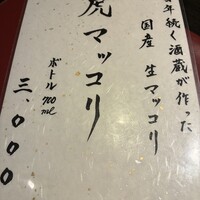 年続く酒蔵が作った
国産 生マッコリ
虎マッコリ
ボトル 700ml
三、〇〇〇